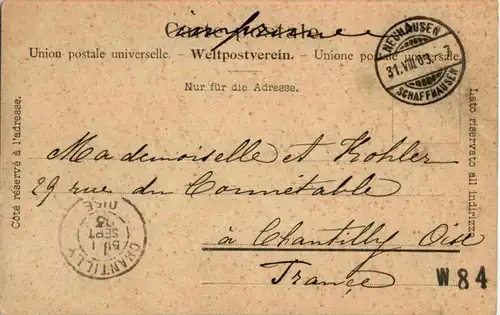 Carte postale
imprimée
Union postale universelle. – Weltpostverein. – Unione postale universale.
Nur für die Adresse.
NEUHAUSEN
31.VIII.03. 7
SCHAFFHAUSEN
Côté réservé à l'adresse.
Lato riservato all indirizzo
Mademoiselle et Kohler
29 rue du Connétable
à Chantilly Oise
France
CHANTILLY
SEPT
03
OISE
W84